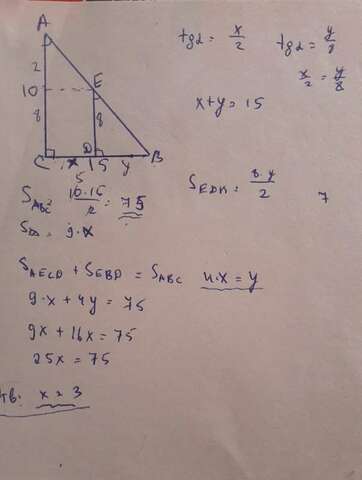 A
2
10
8
E
8
C x 15 D y B
5
tgα = x/2
tgα = y/8
x/2 = y/8
x+y = 15
S ABC = 10·15/2 = 75
S = 9·x
S EDK = 8·y/2
7
S AECD + S EBD = S ABC
4·x = y
9·x + 4y = 75
9x + 16x = 75
25x = 75
x = 3